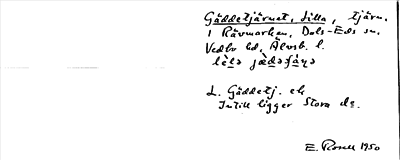 Gäddetjärnet, Lilla, tjärn.
i Rävmarken, Dals-Eds sn.
Vedbo hd, Älvsb. l.
L. Gäddetj. ek
Intill ligger Stora ds.
E. Rosell 1950